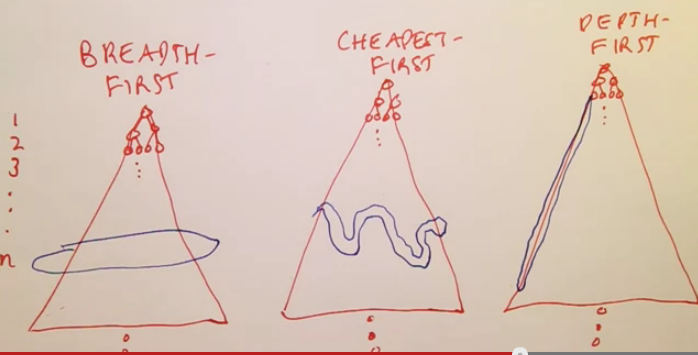 BREADTH-
FIRST
CHEAPEST-
FIRST
DEPTH-
FIRST
1
2
3
n